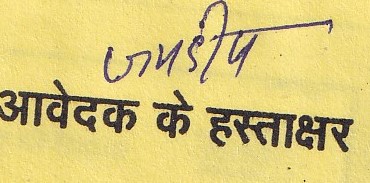 जगदीप
आवेदक के हस्ताक्षर